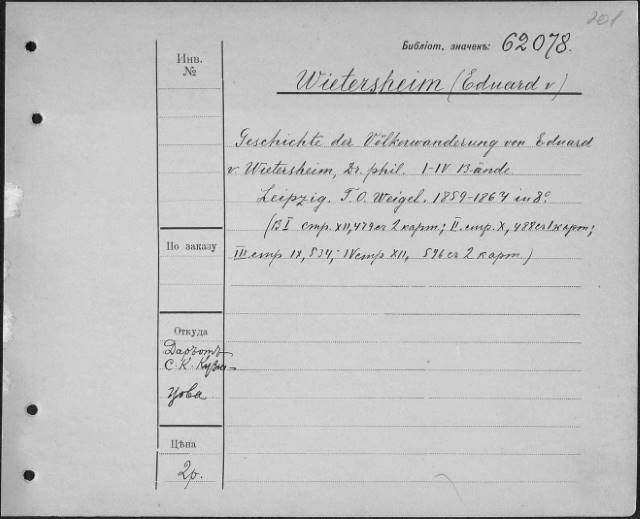 201
Библіот. значекъ: 62078.
Инв.
№
Wietersheim (Eduard v)
Geschichte der Völkerwanderung von Eduard
v. Wietersheim, Dr. phil. I-IV Bände
Leipzig. T. O. Weigel. 1859-1864 in 8º
(B I стр. XII, 479 съ 2 карт.; II стр. X, 488 съ 1 карт;
По заказу
III стр IX, 534; IV стр XII, 596 съ 2 карт.)
Откуда
Даръ отъ
С. К. Кузне-
цова
Цѣна
2р.